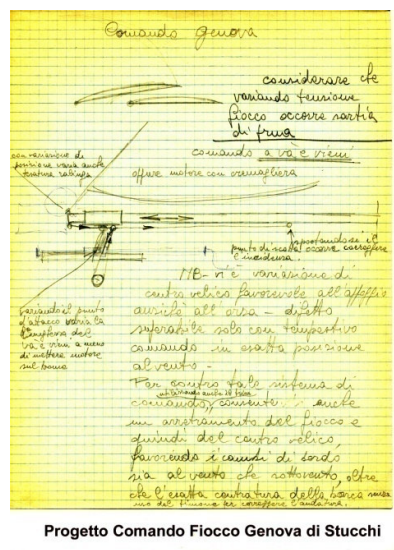 Comando genova
considerare che
variando tensione
fiocco occorre sartia
di prua
comando a va e vieni
oppure motore con cremagliera
con variazione di
posizione varia anche
spostandosi il
punto di scotta occorre correggere
l'incidenza
variando il punto
d'attacco varia la
l'ampiezza del
va e vieni a meno
di mettere motore
sul boma
NB- vi è variazione di
centro velico favorevole all'
anziché all'orza - difetto
superabile solo con tempestivo
comando in esatta posizione
al vento -
Per contro tale sistema di
utilizzando anche
comando, consente vi anche
un arretramento del fiocco e
quindi del centro velico,
favorendo i cambi di bordo
sia al vento che sottovento, oltre
che l'esatta della barca senza
uso del timone per correggere l'andatura.
Progetto Comando Fiocco Genova di Stucchi